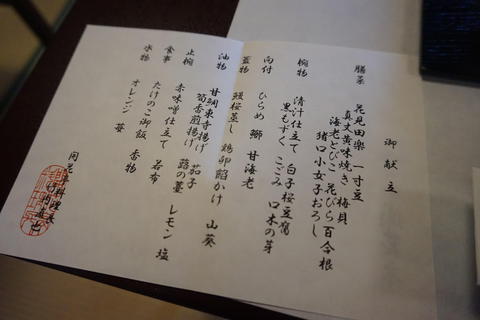 御献立
膳菜 花見田楽 一寸豆
真丈黄味焼き 梅貝
海老とびこ 花びら百合根
猪口小女子おろし
椀物 清汁仕立て 白子桜豆腐
黒もずく こごみ 口木の芽
向付 ひらめ 鰤 甘海老
蓋物 桜蒸し 鶏卵餡かけ 山葵
油物 甘鯛東寺揚げ 茄子
筍香煎揚げ 蕗の薹 レモン 塩
止椀 赤味噌仕立て 若布
食事 たけのこ御飯 香物
水物 オレンジ 苺
料理長